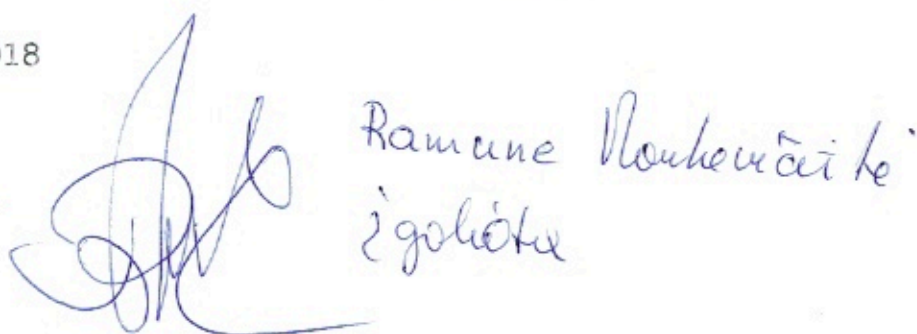 018
Ramune Monkevičaitė
įgaliota